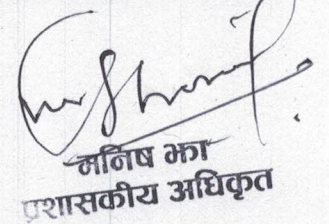 मनिष झा
प्रशासकीय अधिकृत